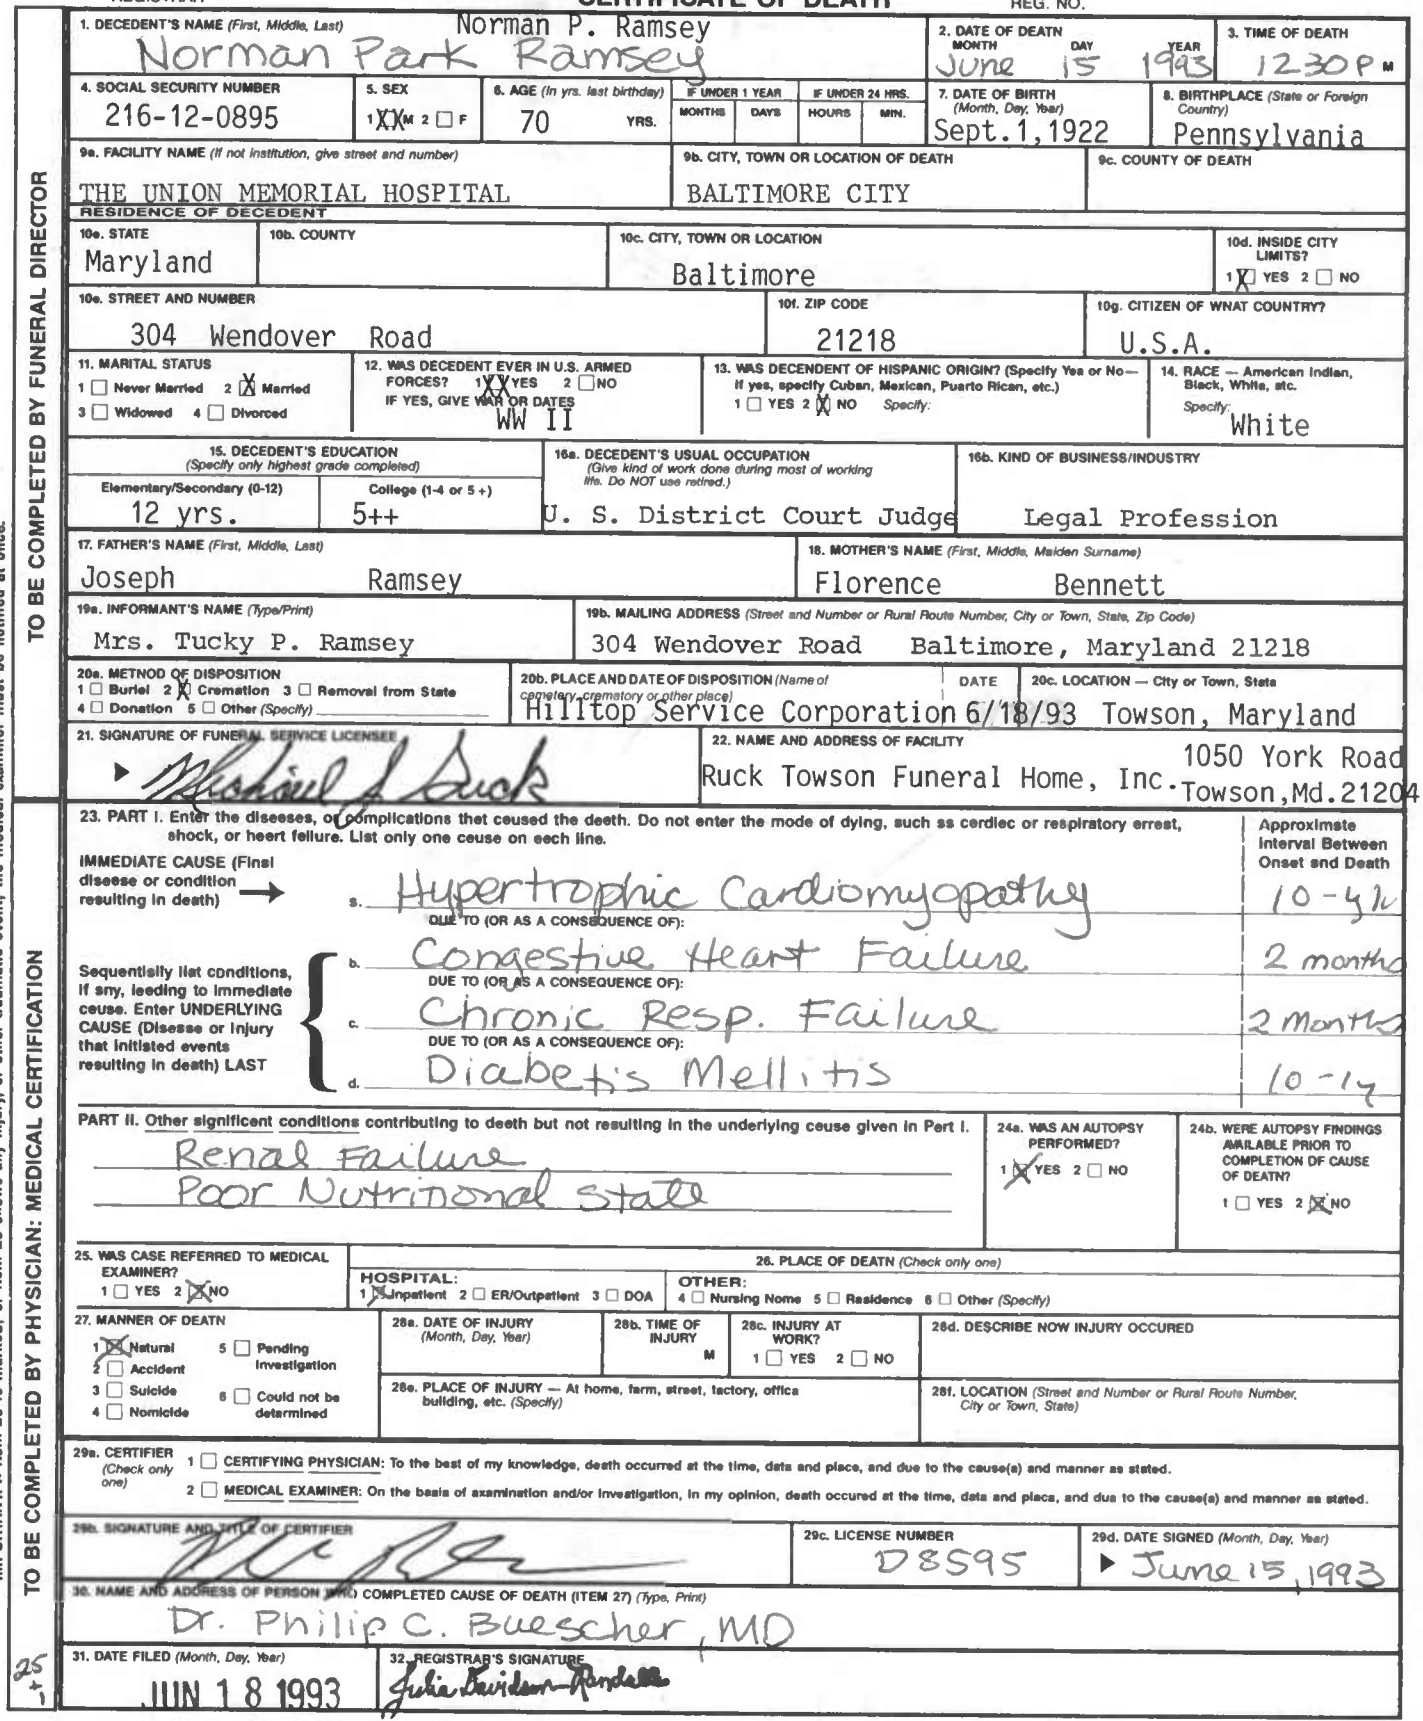 CERTIFICATE OF DEATH
REG. NO.
1. DECEDENT'S NAME (First, Middle, Last) Norman P. Ramsey
Norman Park Ramsey
2. DATE OF DEATH
MONTH DAY YEAR
June 15 1993
3. TIME OF DEATH
12 30 P M
4. SOCIAL SECURITY NUMBER
216-12-0895
5. SEX
1 XX M 2 ☐ F
6. AGE (In yrs. last birthday)
70 YRS.
IF UNDER 1 YEAR
MONTHS DAYS
IF UNDER 24 HRS.
HOURS MIN.
7. DATE OF BIRTH
(Month, Day, Year)
Sept.1,1922
8. BIRTHPLACE (State or Foreign
Country)
Pennsylvania
9a. FACILITY NAME (If not institution, give street and number)
THE UNION MEMORIAL HOSPITAL
9b. CITY, TOWN OR LOCATION OF DEATH
BALTIMORE CITY
9c. COUNTY OF DEATH
RESIDENCE OF DECEDENT
10a. STATE
Maryland
10b. COUNTY
10c. CITY, TOWN OR LOCATION
Baltimore
10d. INSIDE CITY
LIMITS?
1 X YES 2 ☐ NO
10e. STREET AND NUMBER
304 Wendover Road
10f. ZIP CODE
21218
10g. CITIZEN OF WHAT COUNTRY?
U.S.A.
11. MARITAL STATUS
1 ☐ Never Married 2 X Married
3 ☐ Widowed 4 ☐ Divorced
12. WAS DECEDENT EVER IN U.S. ARMED
FORCES? 1 XX YES 2 ☐ NO
IF YES, GIVE WAR OR DATES
WW II
13. WAS DECENDENT OF HISPANIC ORIGIN? (Specify Yes or No—
If yes, specify Cuban, Mexican, Puerto Rican, etc.)
1 ☐ YES 2 X NO Specify:
14. RACE — American Indian,
Black, White, etc.
Specify:
White
15. DECEDENT'S EDUCATION
(Specify only highest grade completed)
Elementary/Secondary (0-12) College (1-4 or 5+)
12 yrs. 5++
16a. DECEDENT'S USUAL OCCUPATION
(Give kind of work done during most of working
life. Do NOT use retired.)
U. S. District Court Judge
16b. KIND OF BUSINESS/INDUSTRY
Legal Profession
17. FATHER'S NAME (First, Middle, Last)
Joseph Ramsey
18. MOTHER'S NAME (First, Middle, Maiden Surname)
Florence Bennett
19a. INFORMANT'S NAME (Type/Print)
Mrs. Tucky P. Ramsey
19b. MAILING ADDRESS (Street and Number or Rural Route Number, City or Town, State, Zip Code)
304 Wendover Road Baltimore, Maryland 21218
20a. METHOD OF DISPOSITION
1 ☐ Burial 2 X Cremation 3 ☐ Removal from State
4 ☐ Donation 5 ☐ Other (Specify)
20b. PLACE AND DATE OF DISPOSITION (Name of
cemetery, crematory or other place)
DATE
Hilltop Service Corporation 6/18/93
20c. LOCATION — City or Town, State
Towson, Maryland
21. SIGNATURE OF FUNERAL SERVICE LICENSEE
Michael J Ruck
22. NAME AND ADDRESS OF FACILITY
Ruck Towson Funeral Home, Inc.
1050 York Road
Towson,Md.21204
23. PART I. Enter the diseases, or complications that caused the death. Do not enter the mode of dying, such as cardiac or respiratory arrest,
shock, or heart failure. List only one cause on each line.
Approximate
Interval Between
Onset and Death
IMMEDIATE CAUSE (Final
disease or condition
resulting in death)
a. Hypertrophic Cardiomyopathy
DUE TO (OR AS A CONSEQUENCE OF):
Sequentially list conditions,
if any, leading to immediate
cause. Enter UNDERLYING
CAUSE (Disease or injury
that initiated events
resulting in death) LAST
b. Congestive Heart Failure 2 months
DUE TO (OR AS A CONSEQUENCE OF):
c. Chronic Resp. Failure 2 months
DUE TO (OR AS A CONSEQUENCE OF):
d. Diabetis Mellitis
PART II. Other significant conditions contributing to death but not resulting in the underlying cause given in Part I.
Renal Failure
Poor Nutritional State
24a. WAS AN AUTOPSY
PERFORMED?
1 X YES 2 ☐ NO
24b. WERE AUTOPSY FINDINGS
AVAILABLE PRIOR TO
COMPLETION OF CAUSE
OF DEATH?
1 ☐ YES 2 X NO
25. WAS CASE REFERRED TO MEDICAL
EXAMINER?
1 ☐ YES 2 X NO
26. PLACE OF DEATH (Check only one)
HOSPITAL:
1 X Inpatient 2 ☐ ER/Outpatient 3 ☐ DOA
OTHER:
4 ☐ Nursing Home 5 ☐ Residence 6 ☐ Other (Specify)
27. MANNER OF DEATH
1 X Natural 5 ☐ Pending
Investigation
2 ☐ Accident
3 ☐ Suicide 6 ☐ Could not be
determined
4 ☐ Homicide
28a. DATE OF INJURY
(Month, Day, Year)
28b. TIME OF
INJURY
M
28c. INJURY AT
WORK?
1 ☐ YES 2 ☐ NO
28d. DESCRIBE HOW INJURY OCCURED
28e. PLACE OF INJURY — At home, farm, street, factory, office
building, etc. (Specify)
28f. LOCATION (Street and Number or Rural Route Number,
City or Town, State)
29a. CERTIFIER
(Check only
one)
1 ☐ CERTIFYING PHYSICIAN: To the best of my knowledge, death occurred at the time, data and place, and due to the cause(s) and manner as stated.
2 ☐ MEDICAL EXAMINER: On the basis of examination and/or investigation, in my opinion, death occured at the time, data and place, and due to the cause(s) and manner as stated.
29b. SIGNATURE AND TITLE OF CERTIFIER
29c. LICENSE NUMBER
D8595
29d. DATE SIGNED (Month, Day, Year)
June 15, 1993
30. NAME AND ADDRESS OF PERSON WHO COMPLETED CAUSE OF DEATH (ITEM 27) (Type, Print)
Dr. Philip C. Buescher, MD
31. DATE FILED (Month, Day, Year)
JUN 18 1993
32. REGISTRAR'S SIGNATURE
Julia Davidson-Randall
TO BE COMPLETED BY FUNERAL DIRECTOR
TO BE COMPLETED BY PHYSICIAN: MEDICAL CERTIFICATION
25